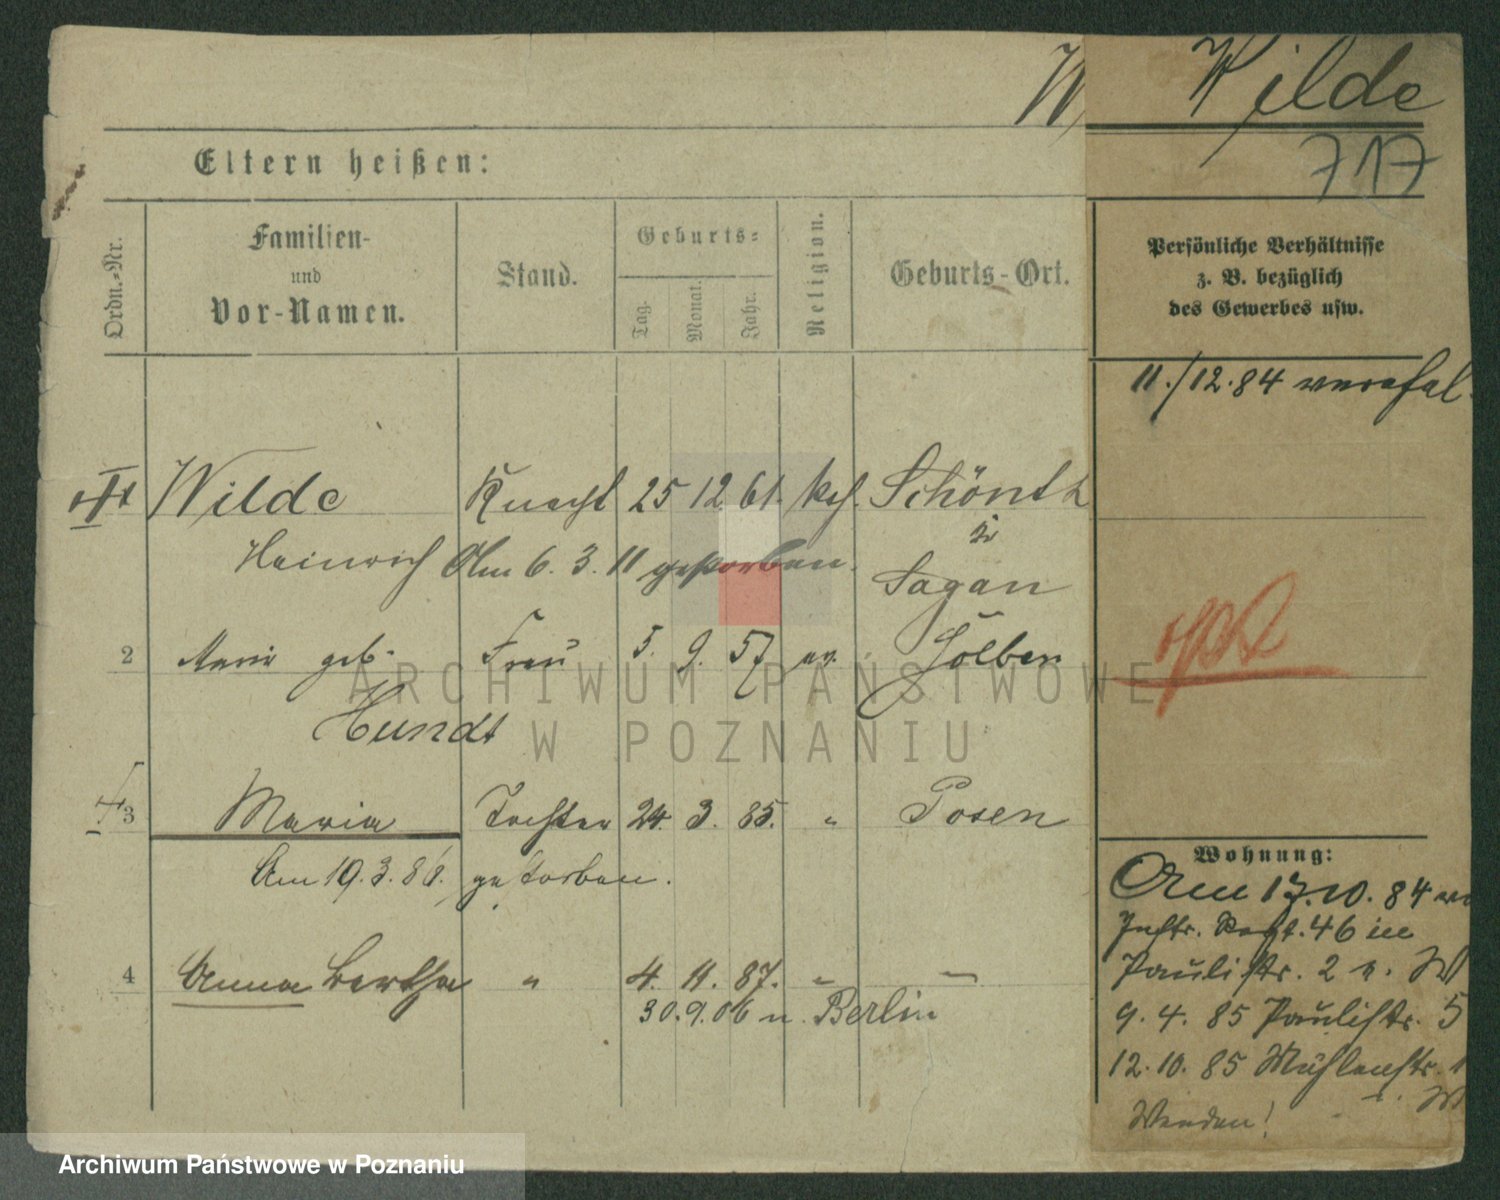 Wilde
717
Eltern heißen:
Ordn.-Nr.
Familien-
und
Vor-Namen.
Stand.
Geburts-
Tag.
Monat.
Jahr.
Religion.
Geburts-Ort.
Persönliche Verhältnisse
z. B. bezüglich
des Gewerbes usw.
11./12.84
Wilde Knecht 25 12 61. kth. Schönth
Heinrich Am 6. 3. 11 gestorben.
Sagan
2 Marie geb. Frau 5. 9. 57 ev. Gölben
Hundt
3 Maria Tochter 24. 3. 85. " Posen
Am 19.3.86. gestorben.
4 Anna Bertha " 4. 11. 87. " —
30.9.06 n. Berlin
Wohnung:
Am 17.10.84
Inftr. Regt. 46 in
Paulistr. 2 b. W
9. 4. 85 Paulistr. 5
12.10. 85 Mühlenstr. 1
W
Wenden!
ARCHIWUM PAŃSTWOWE
W POZNANIU
Archiwum Państwowe w Poznaniu